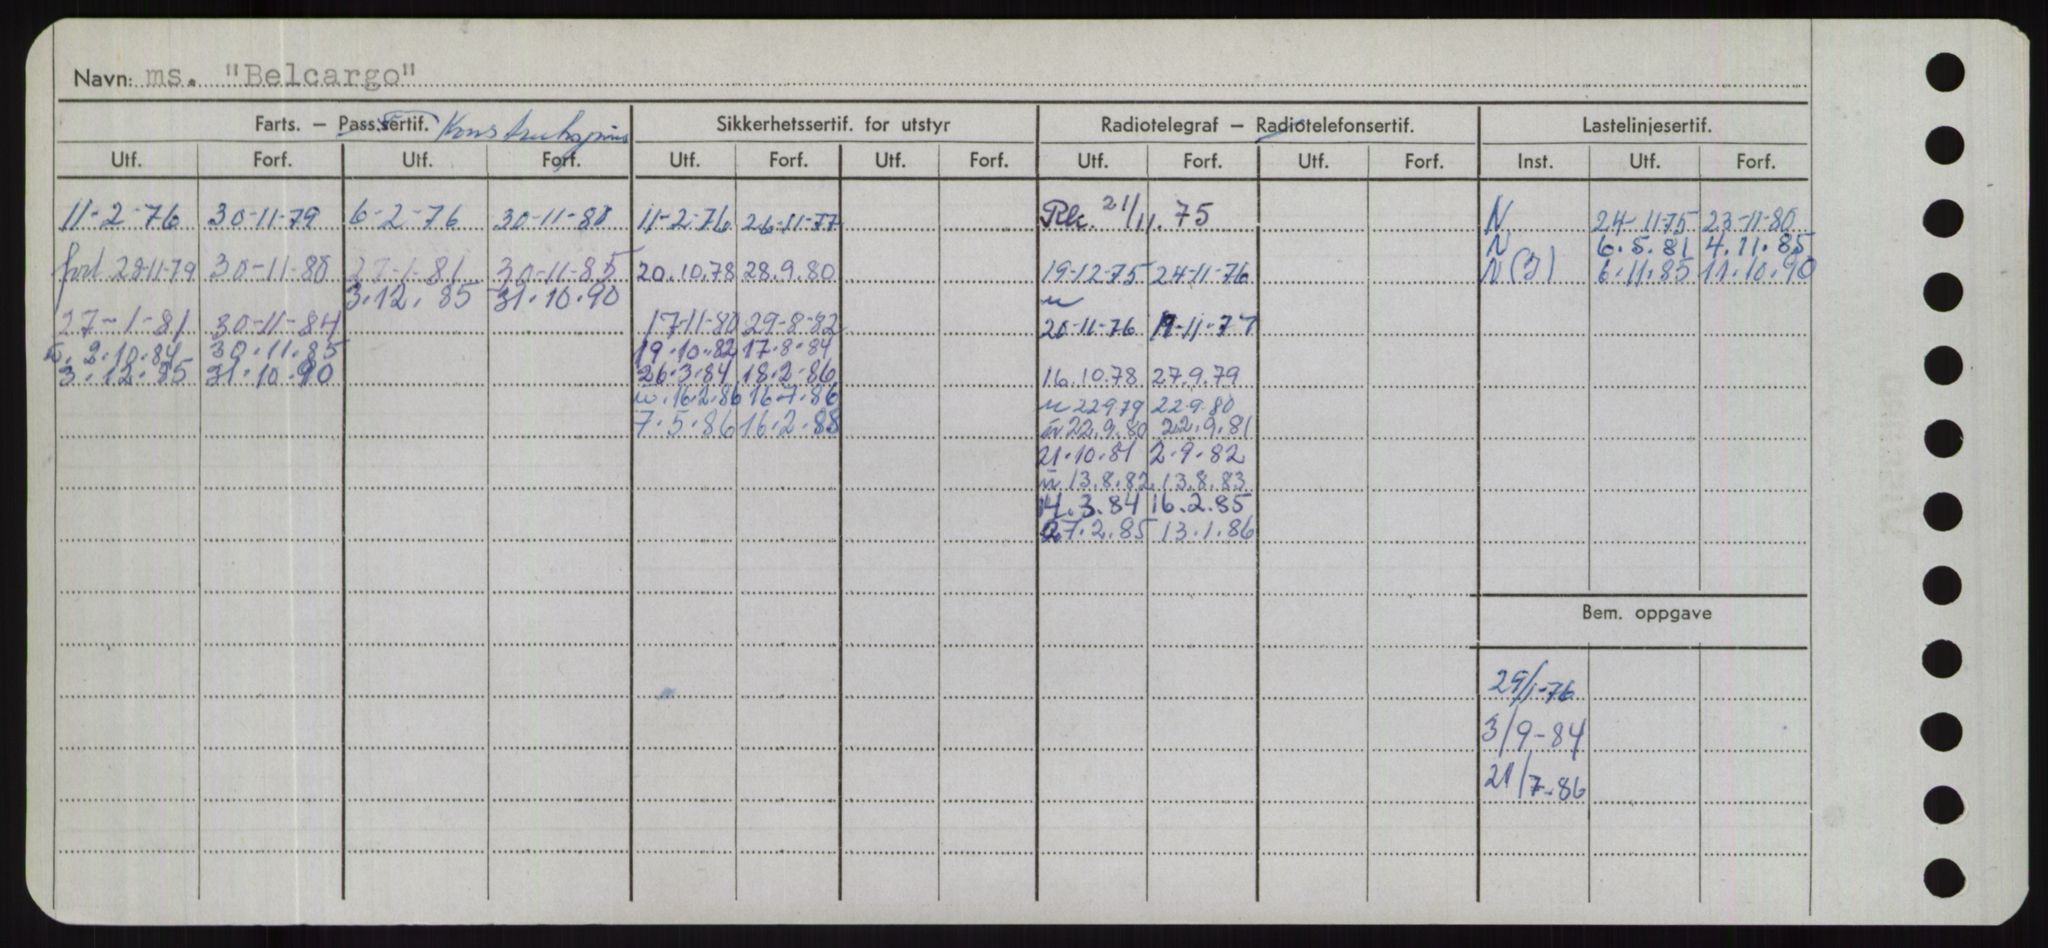 Navn: ms. "Belcargo"
Farts. – Pass.sertif. Sikkerhetssertif. for utstyr Radiotelegraf – Radiotelefonsertif. Lastelinjesertif.
Utf. Forf. Utf. Forf. Utf. Forf. Utf. Forf. Utf. Forf. Utf. Forf. Inst. Utf. Forf.
11-2-76 30-11-79 6-2-76 30-11-80 11-2-76 26-11-77 21/11.75 N 24-11-75 23-11-80
N 6.5.81 4.11.85
28-11-79 30-11-80 27-1-81 30-11-85 20.10.78 28.9.80 19-12-75 24-11-76 N(J) 6.11.85 11.10.90
3.12.85 31.10.90
27-1-81 30-11-84 17-11-80 29-8-82 20-11-76 19-11-77
2.10.84 30.11.85 19.10.82 17.8.84
3.12.85 31.10.90 26.3.84 18.2.86 16.10.78 27.9.79
16.2.86 16.7.86 22.9.79 22.9.80
7.5.86 16.2.88 22.9.80 22.9.81
21.10.81 2.9.82
13.8.82 13.8.83
14.3.84 16.2.85
27.2.85 13.1.86
Bem. oppgave
29/1-76
3/9-84
21/7-86